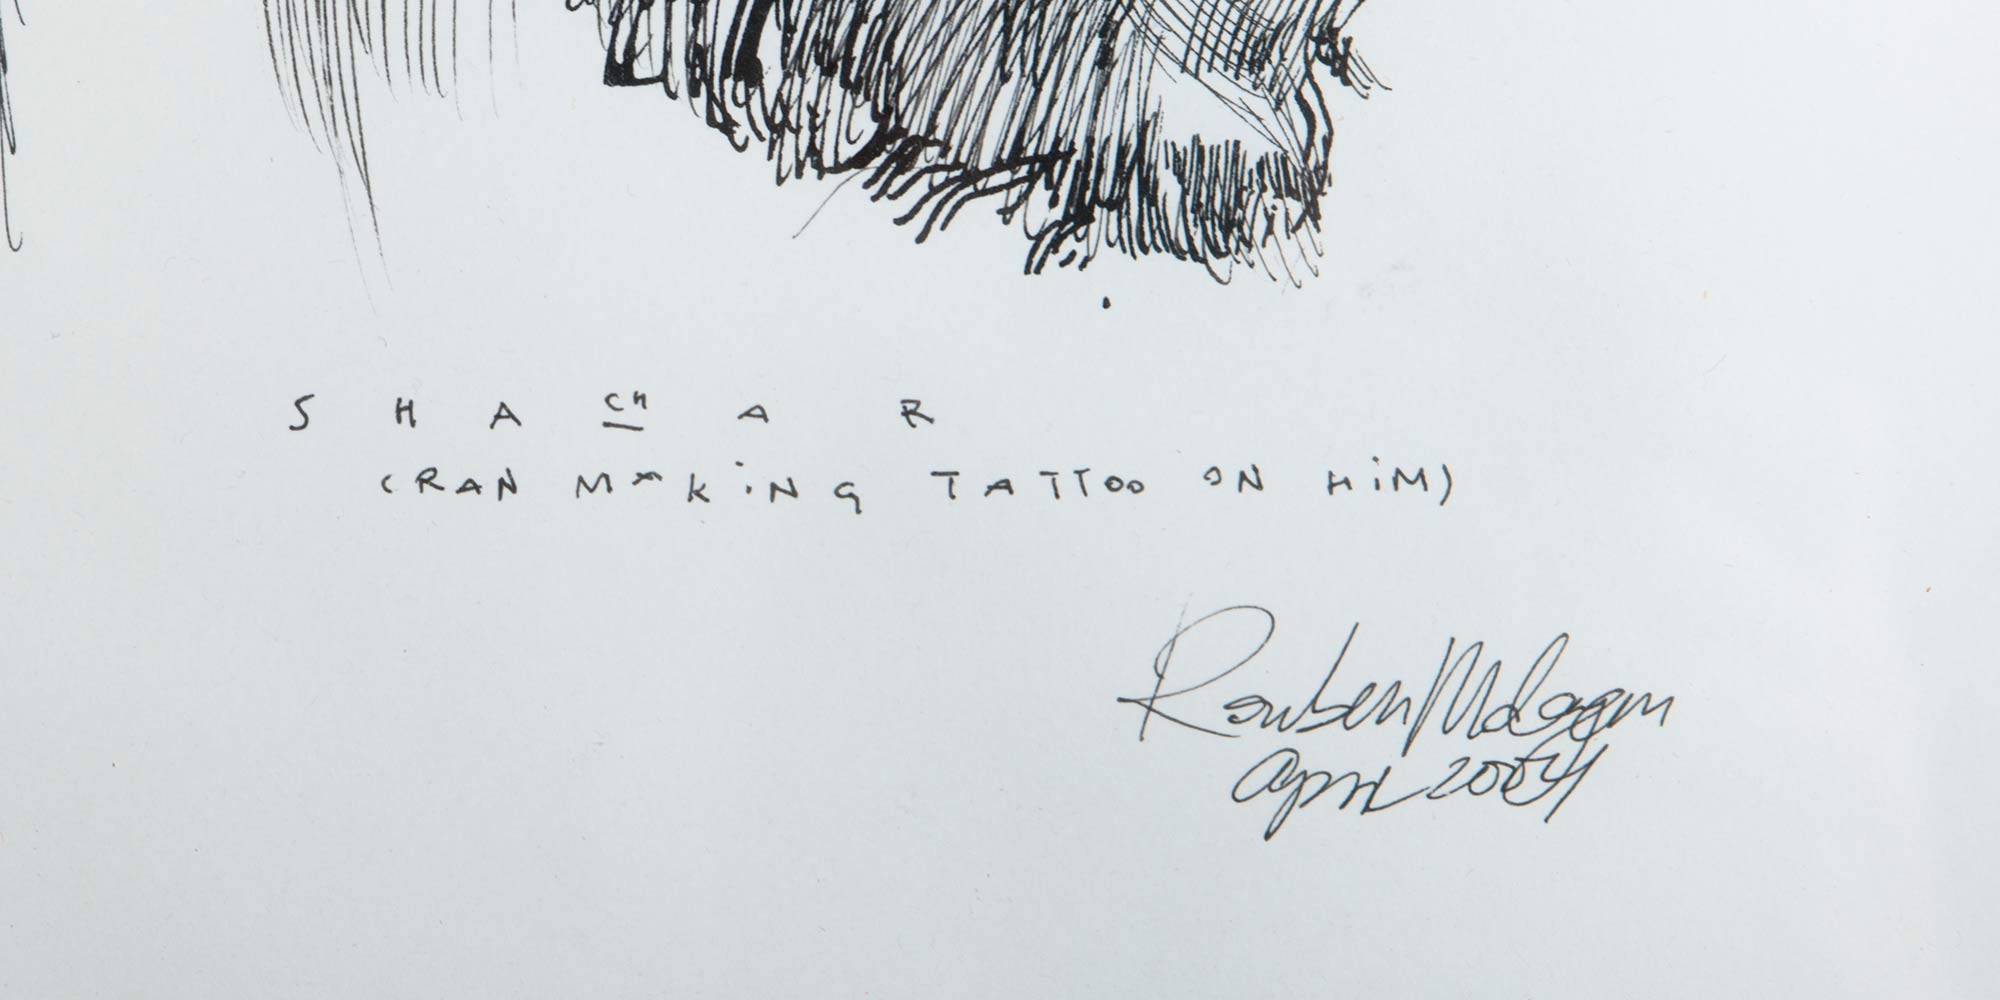 SHACHAR
(RAN MAKiNG TATTOO ON HiM)
Reuben
April 2004